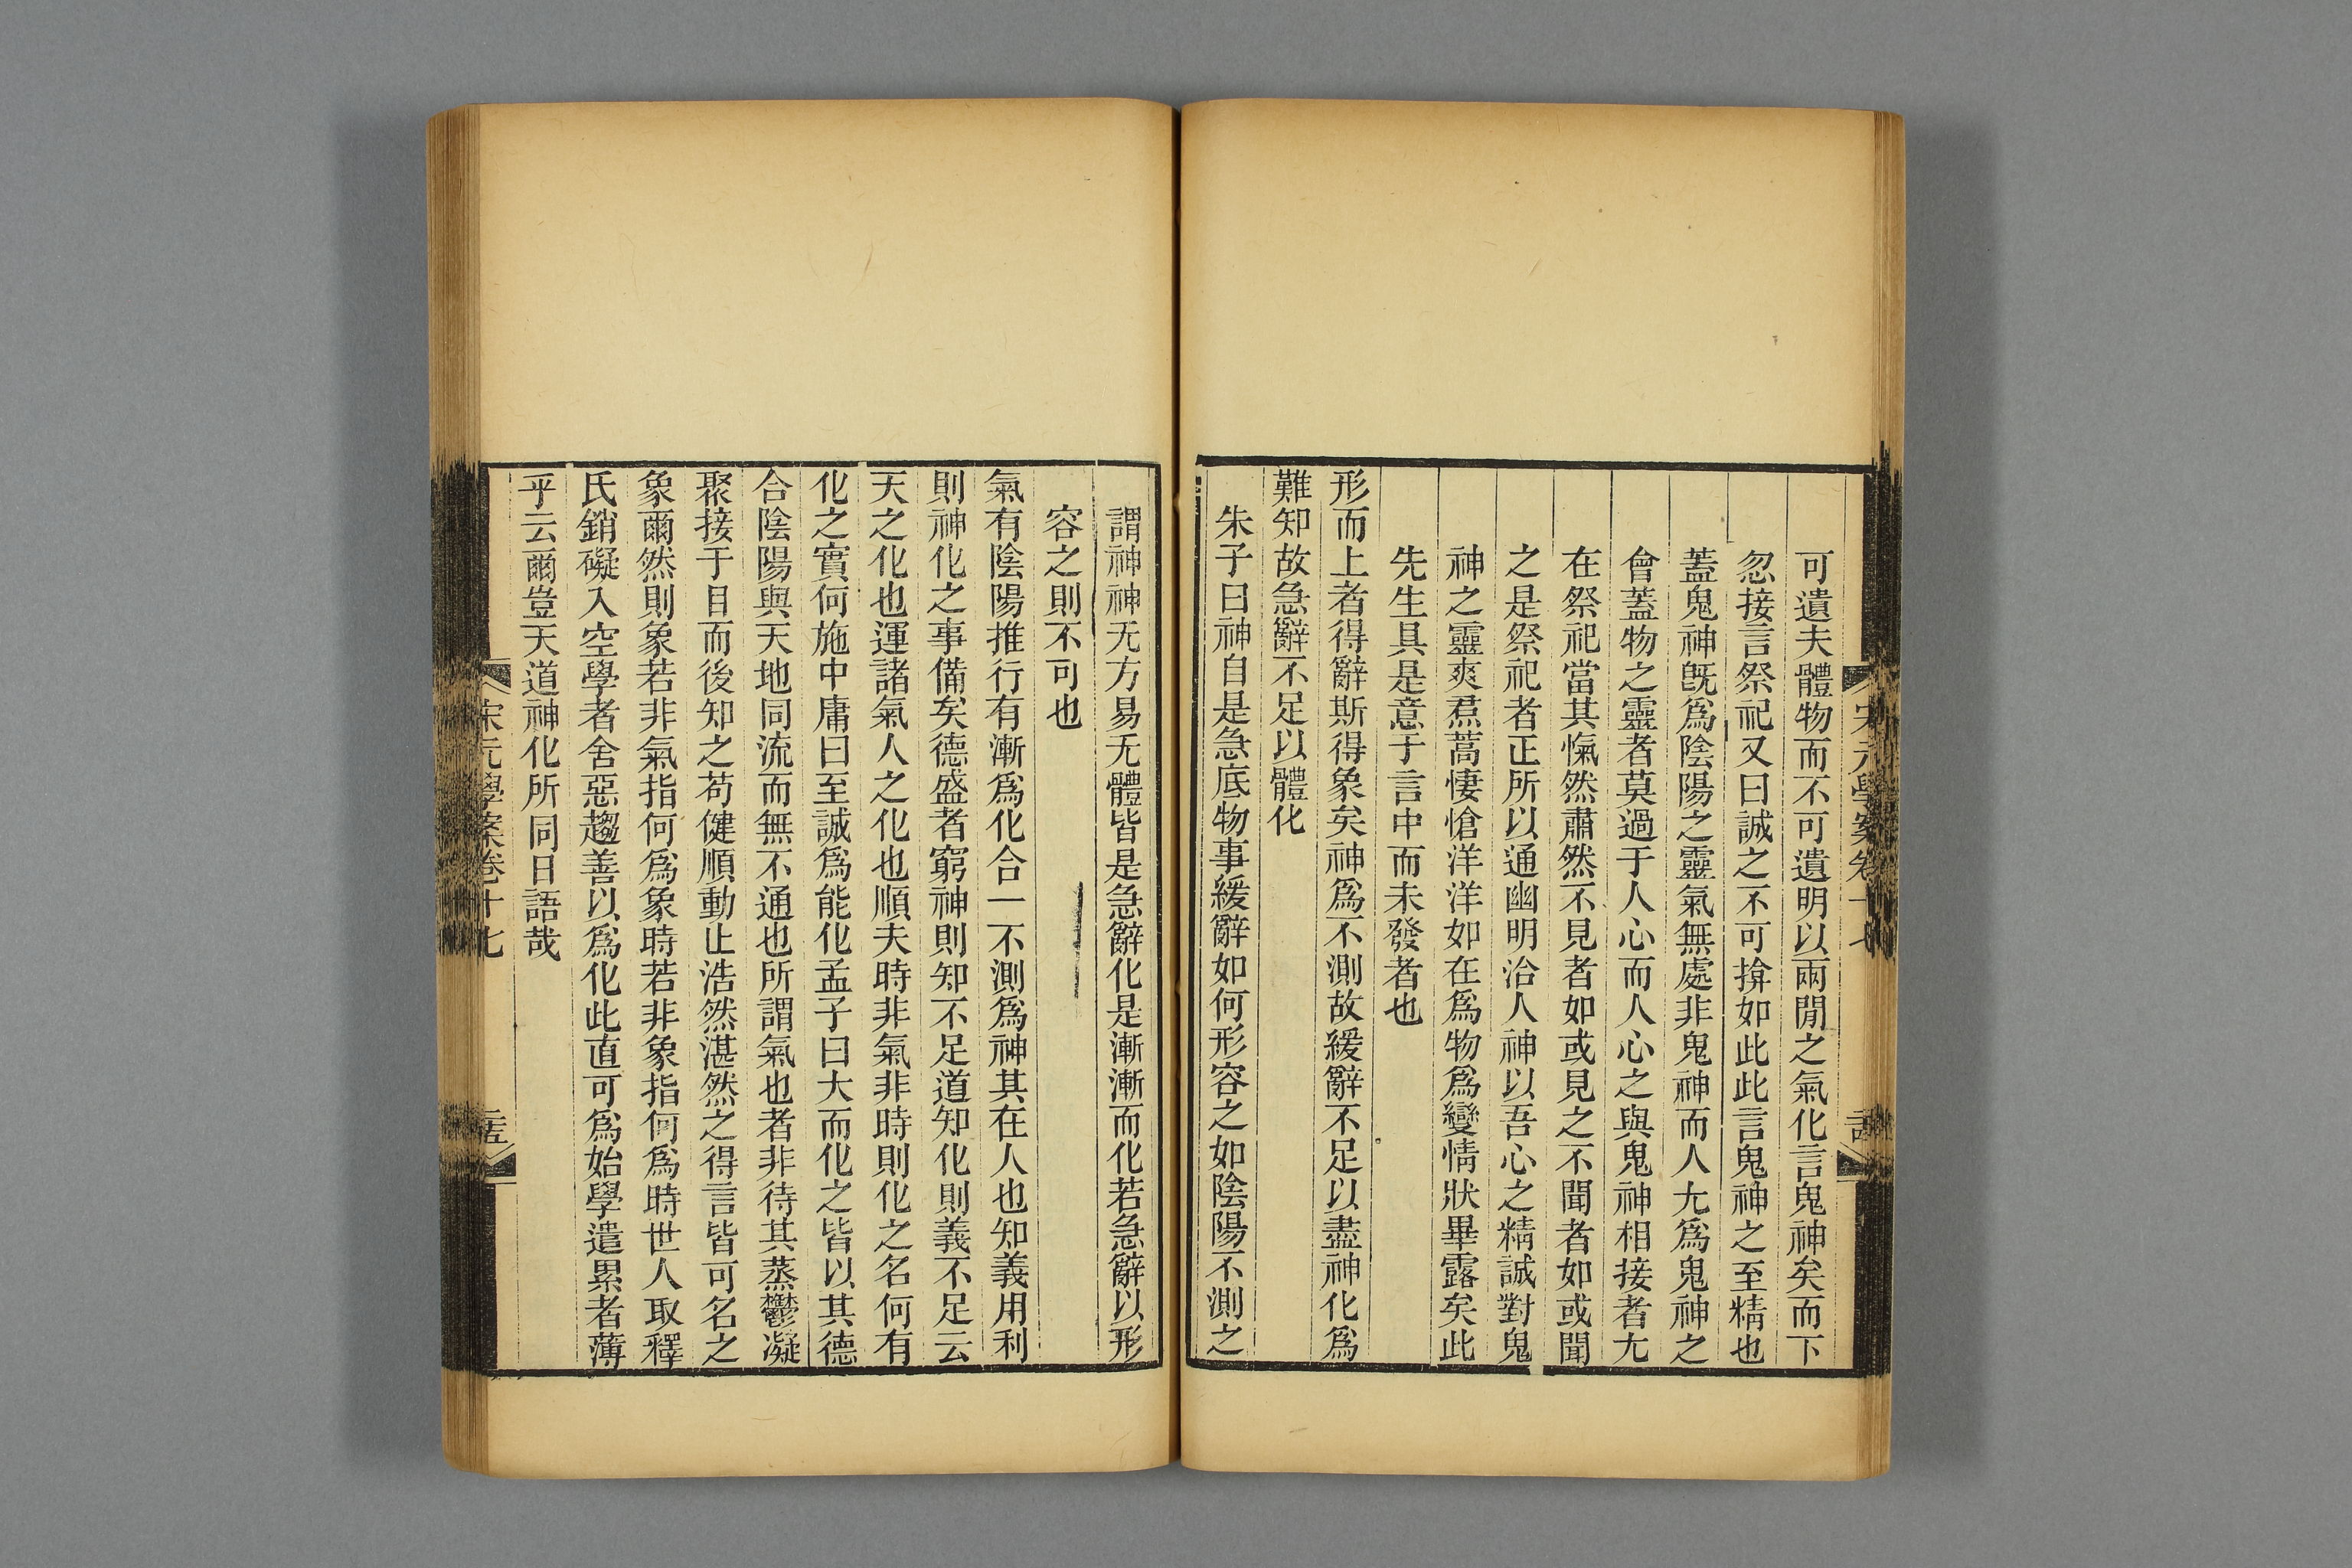 可遺夫體物而不可遺明以兩閒之氣化言鬼神矣而下
忽接言祭祀又曰誠之不可揜如此此言鬼神之至精也
蓋鬼神旣爲陰陽之靈氣無處非鬼神而人尢爲鬼神之
會蓋物之靈者莫過于人心而人心之與鬼神相接者尢
在祭祀當其愾然肅然不見者如或見之不聞者如或聞
之是祭祀者正所以通幽明洽人神以吾心之精誠對鬼
神之靈爽焄蒿悽愴洋洋如在爲物爲變情狀畢露矣此
先生具是意于言中而未發者也
形而上者得辭斯得象矣神爲不測故緩辭不足以盡神化爲
難知故急辭不足以體化
朱子曰神自是急底物事緩辭如何形容之如陰陽不測之
謂神神无方易无體皆是急辭化是漸漸而化若急辭以形
容之則不可也
氣有陰陽推行有漸爲化合一不測爲神其在人也知義用利
則神化之事備矣德盛者窮神則知不足道知化則義不足云
天之化也運諸氣人之化也順夫時非氣非時則化之名何有
化之實何施中庸曰至誠爲能化孟子曰大而化之皆以其德
合陰陽與天地同流而無不通也所謂氣也者非待其蒸鬱凝
聚接于目而後知之苟健順動止浩然湛然之得言皆可名之
象爾然則象若非氣指何爲象時若非象指何爲時世人取釋
氏銷礙入空學者舍惡趨善以爲化此直可爲始學遣累者薄
乎云爾豈天道神化所同日語哉
宋元學案卷十七